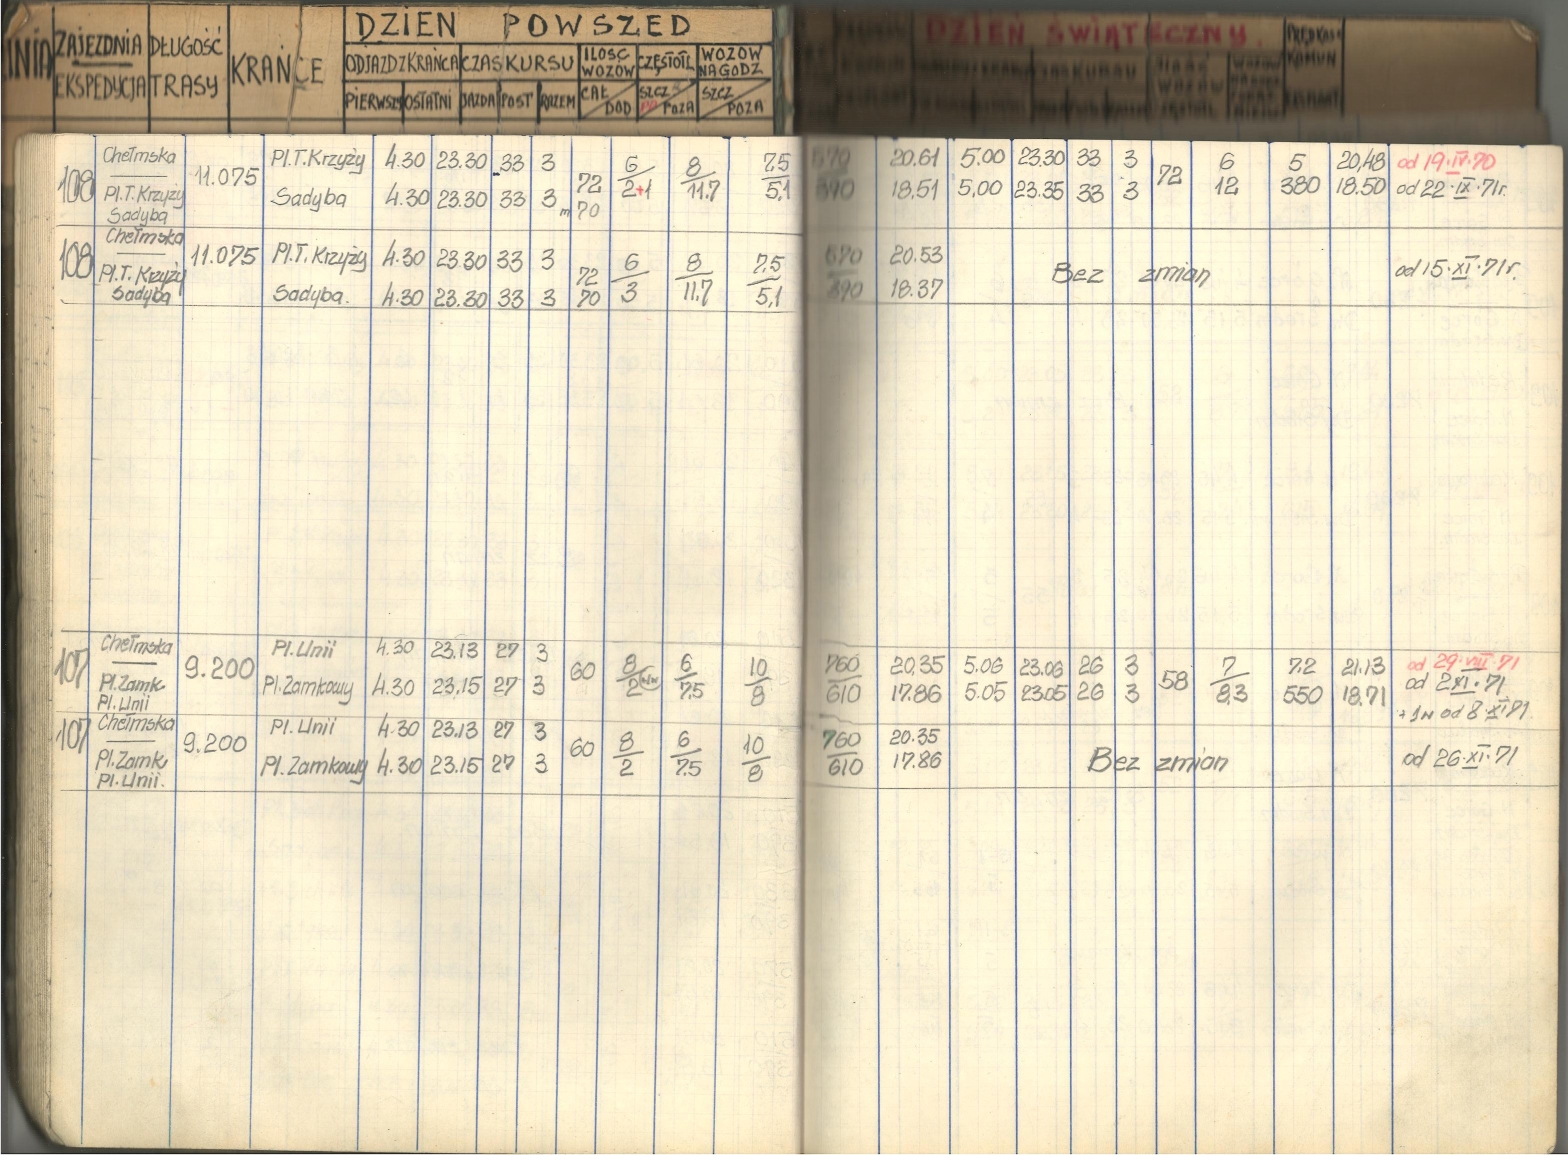 DZIEŃ POWSZED
ZAJEZDNIA DŁUGOŚĆ KRAŃCE ODJAZD Z KRAŃCA CZAS KURSU ILOŚC WOZÓW CZĘSTOTL. WOZÓW NA GODZ
EKSPEDYCJA TRASY PIERWSZY OSTATNI JAZDA POST RAZEM CAŁ DOD SZCZ POZA SZCZ POZA
DZIEŃ ŚWIĄTECZNY.
108 Chełmska 11.075 Pl.T.Krzyży 4.30 23.30 33 3 72 6 8 7,5 570 20,61 5.00 23.30 33 3 72 6 5 20,48 od 19.IV.70
Pl.T.Krzyży Sadyba 4.30 23.30 33 3 m 70 2+1 11,7 5,1 390 18,51 5,00 23.35 33 3 12 380 18.50 od 22.IX.71r.
Sadyba
108 Chełmska 11.075 Pl.T. Krzyży 4.30 23.30 33 3 72 6 8 7,5 570 20.53 Bez zmian od 15.XI.71r.
Pl.T. Krzyży Sadyba. 4.30 23.30 33 3 70 3 11,7 5,1 390 18.37
Sadyba
107 Chełmska 9.200 Pl.Unii 4.30 23.13 27 3 60 8 6 10 760 20,35 5.06 23.06 26 3 58 7 7.2 21.13 od 29.VIII.71
Pl.Zamk. Pl.Zamkowy 4.30 23.15 27 3 2 7,5 8 610 17.86 5.05 23.05 26 3 8,3 550 18,71 od 2XI.71
Pl.Unii + 1N od 8.XI.71.
107 Chełmska 9.200 Pl.Unii 4.30 23.13 27 3 60 8 6 10 760 20.35 Bez zmian od 26.XI.71
Pl.Zamk. Pl.Zamkowy 4.30 23.15 27 3 2 7.5 8 610 17.86
Pl.Unii.